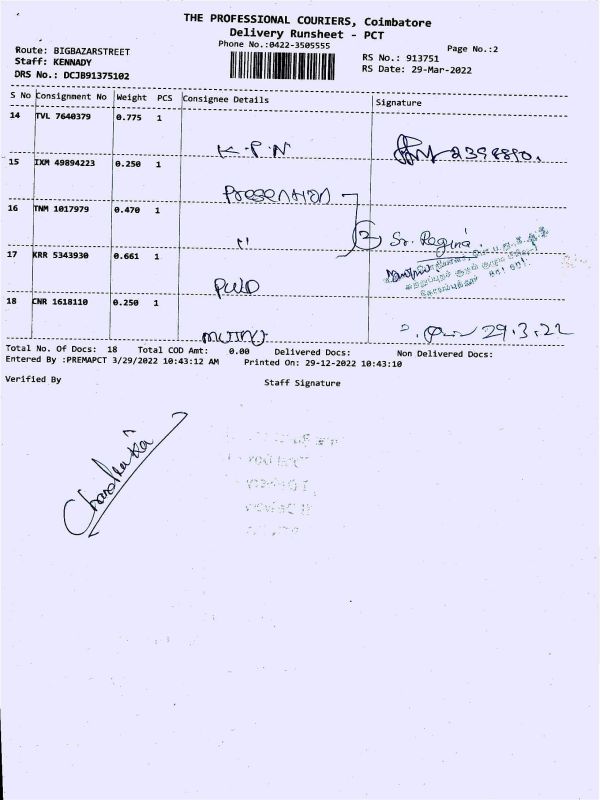 THE PROFESSIONAL COURIERS, Coimbatore
Delivery Runsheet - PCT
Phone No.:0422-3505555
Page No.:2
Route: BIGBAZARSTREET
Staff: KENNADY
DRS No.: DCJB91375102
RS No.: 913751
RS Date: 29-Mar-2022
S No Consignment No Weight PCS Consignee Details Signature
14 TVL 7640379 0.775 1
K.P.N
15 IXM 49894223 0.250 1
Presention
16 TNM 1017979 0.470 1
" 2 Sr. Regina.
17 KRR 5343930 0.661 1
PWD
18 CNR 1618110 0.250 1
29.3.22
Total No. Of Docs: 18 Total COD Amt: 0.00 Delivered Docs: Non Delivered Docs:
Entered By :PREMAPCT 3/29/2022 10:43:12 AM Printed On: 29-12-2022 10:43:10
Verified By Staff Signature